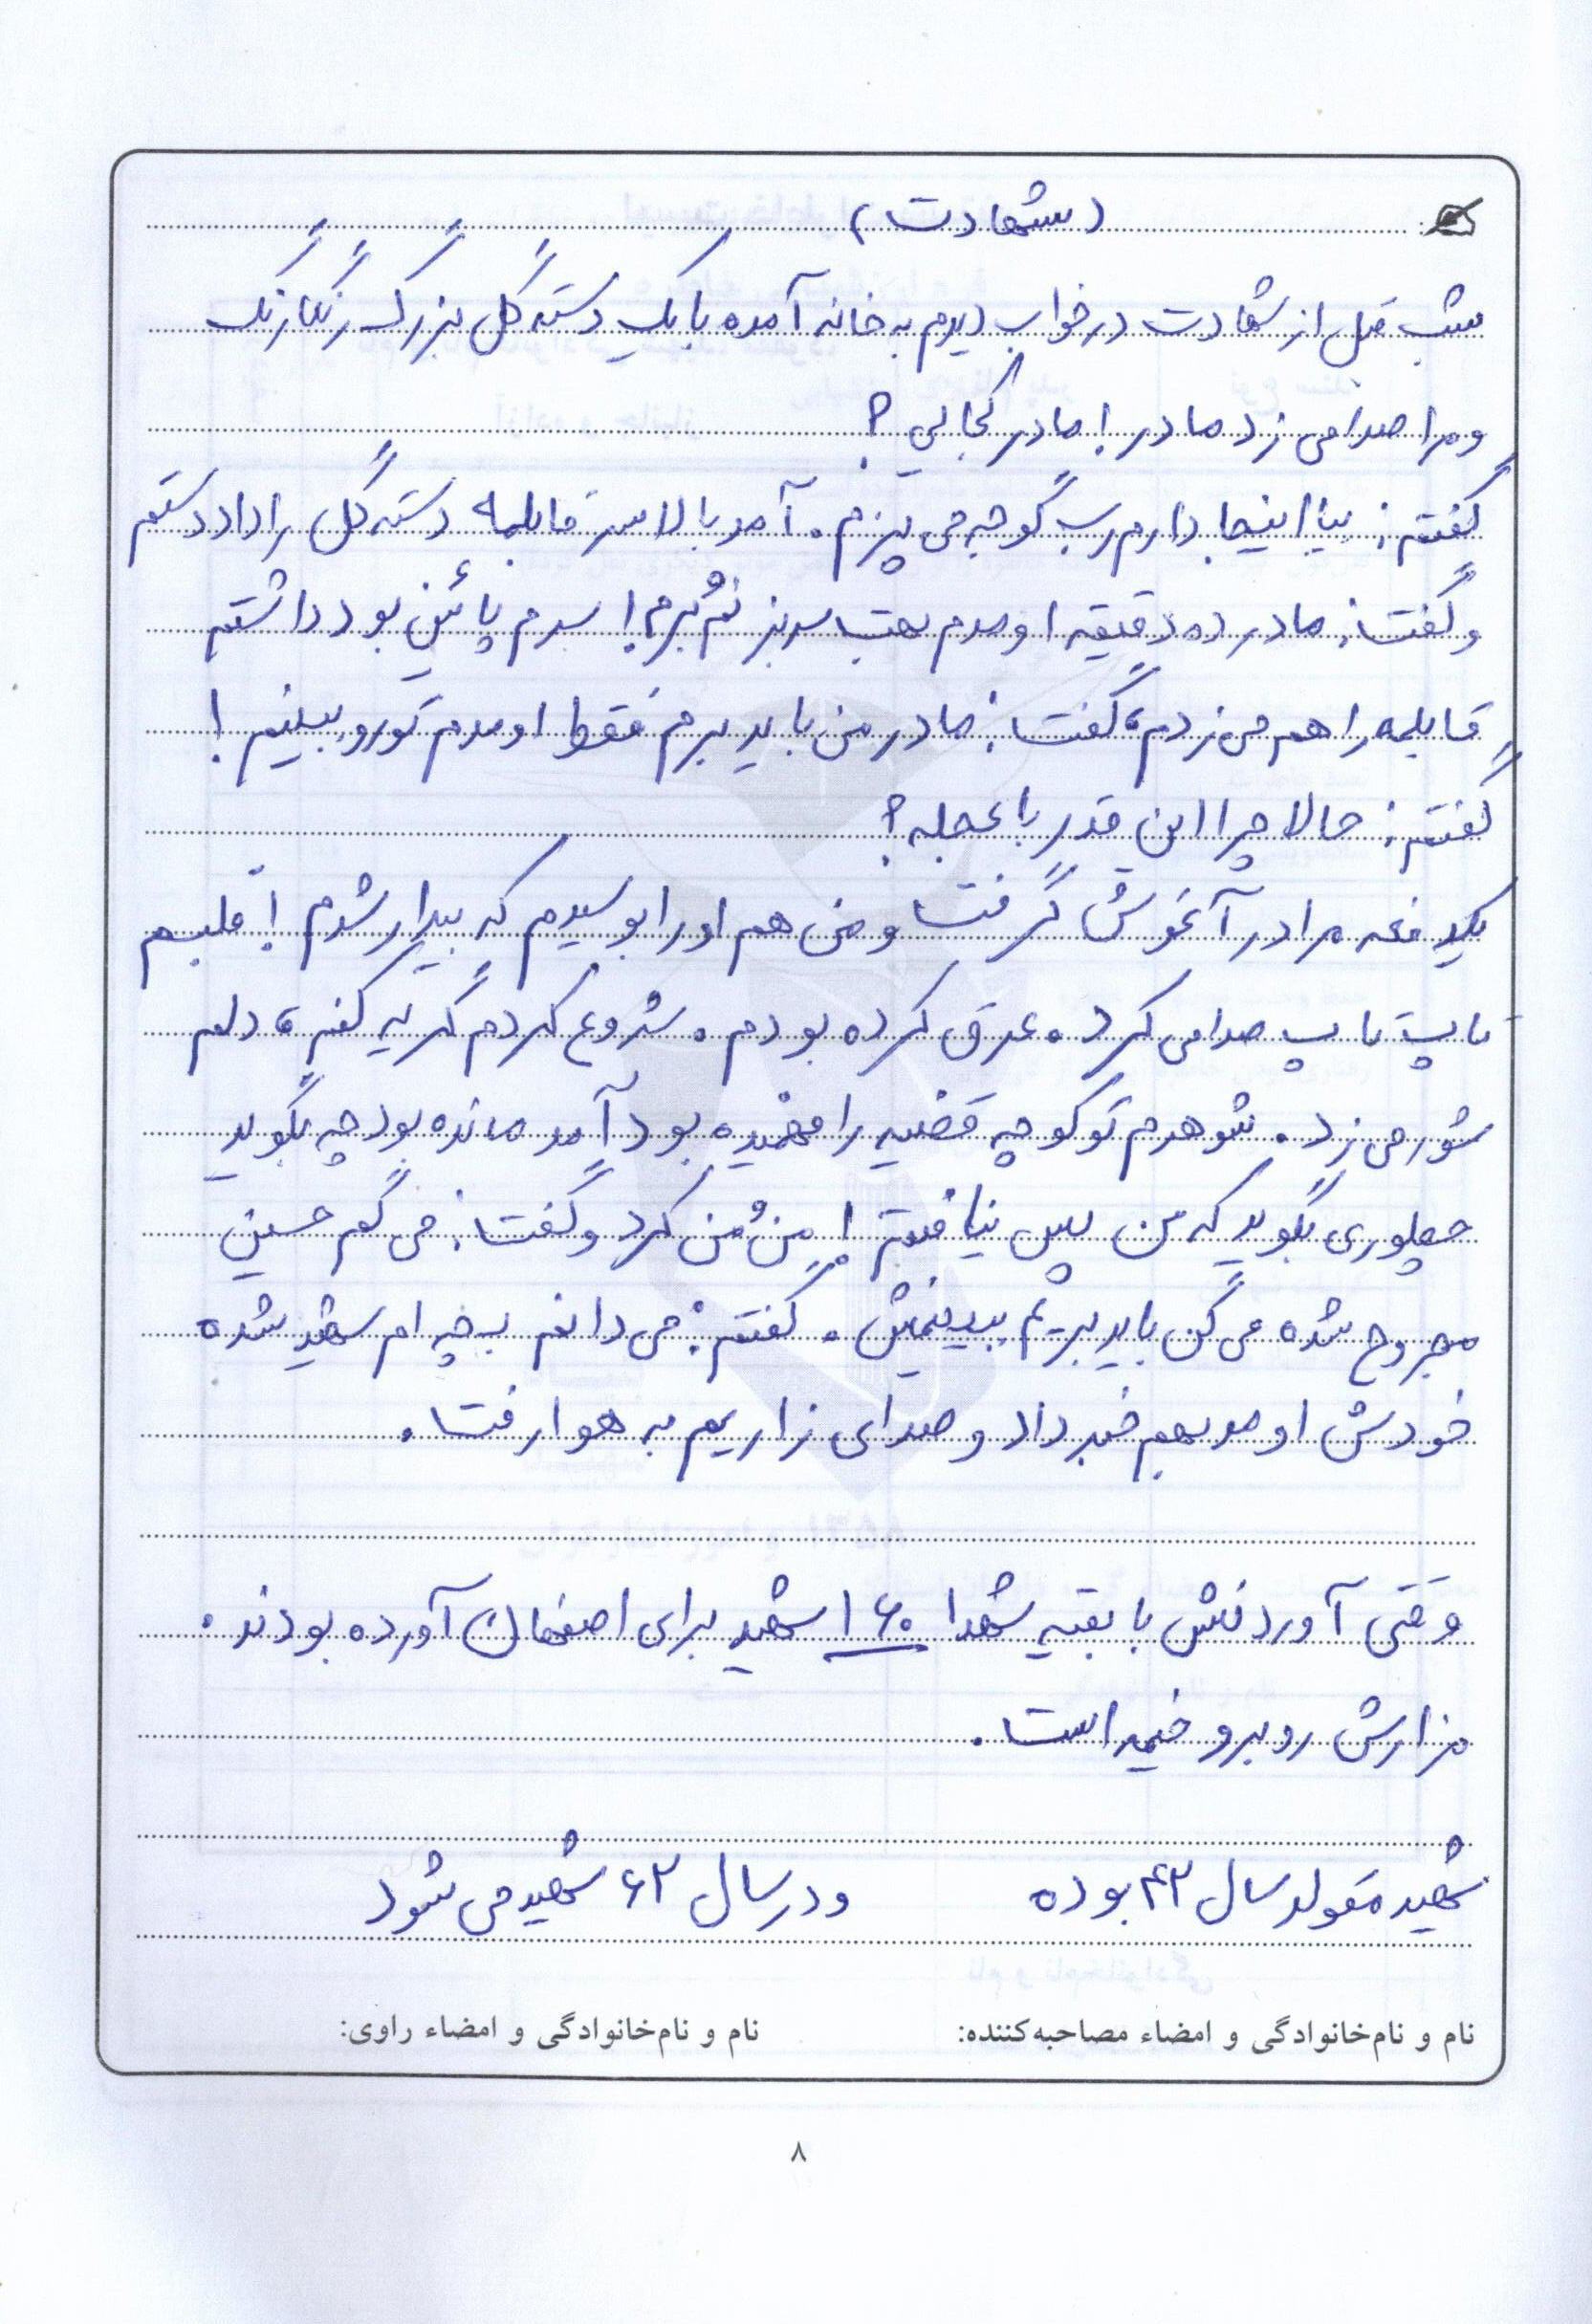 (شهادت)
شب قبل از شهادت در خواب دیدم به خانه آمده با یک دسته گل بزرگ رنگارنگ
و مرا صدا می زد مادر! مادر کجایی؟
گفتم: بیا اینجا دارم رب گوجه می پزم. آمد بالا سر قابلمه دسته گل را داد دستم
و گفت: مادر ده دقیقه اومدم بهت سر بزنم برم! سرم پائین بود داشتم
قابلمه را هم می زدم، گفت: مادر من باید برم فقط اومدم تورو ببینم!
گفتم: حالا چرا این قدر با عجله؟
یکدفعه مرا در آغوش گرفت و من هم او را بوسیدم که بیدار شدم! قلبم
تاپ تاپ صدا می کرد، عرق کرده بودم. شروع کردم گریه کنم، دلم
شور می زد. شوهرم تو کوچه قضیه را فهمیده بود آمد مانده بود چه بگوید
چطوری بگوید که من پس نیافتم! مِن مُن کرد و گفت: می گم حسین
مجروح شده می گن باید بریم ببینیمش. گفتم: می دانم بچه ام شهید شده
خودش اومد بهم خبر داد و صدای زاریم به هوا رفت.
وقتی آوردنش با بقیه شهدا ۱۶۰ شهید برای اصفهان آورده بودند.
مزارش روبرو خیمه است.
شهید متولد سال ۴۳ بوده و در سال ۶۲ شهید می شود
نام و نام‌خانوادگی و امضاء مصاحبه‌کننده: نام و نام‌خانوادگی و امضاء راوی:
۸